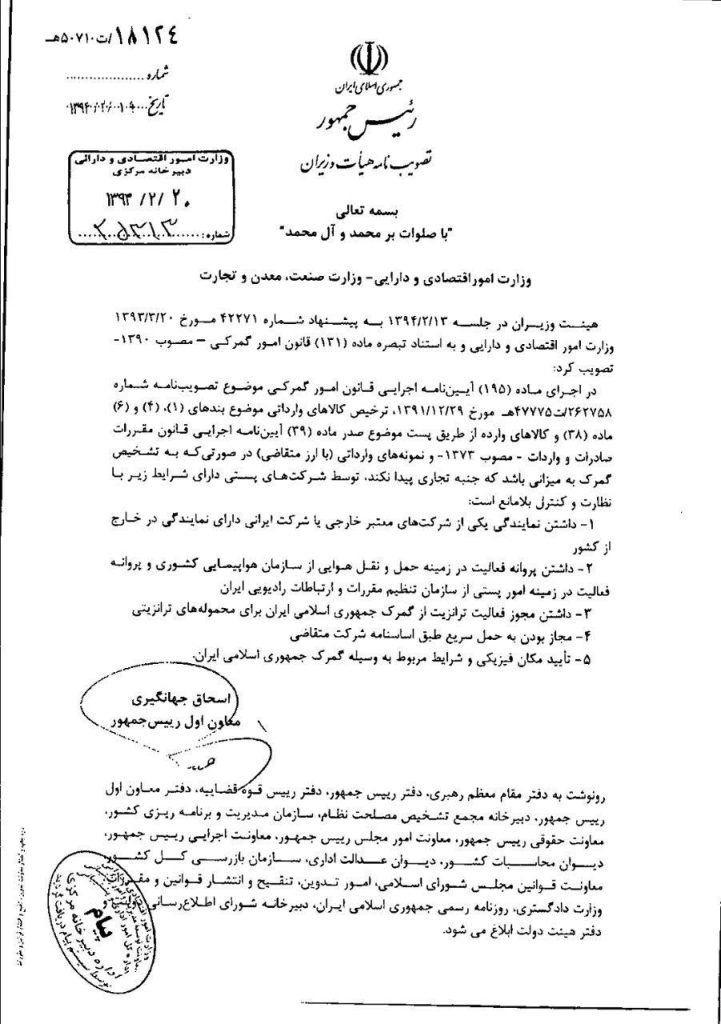 ۱۸۱۲٤/ت۵۰۷۱۰هـ
شماره ....................
تاریخ
جمهوری اسلامی ایران
رئیس جمهور
تصویب نامه هیأت وزیران
وزارت امور اقتصادی و دارائی
دبیرخانه مرکزی
۱۳۹۴/۲/۲۰
شماره:
بسمه تعالی
"با صلوات بر محمد و آل محمد"
وزارت امور اقتصادی و دارایی- وزارت صنعت، معدن و تجارت
هیئت وزیران در جلسه ۱۳۹۴/۲/۱۳ به پیشنهاد شماره ۴۲۲۷۱ مورخ ۱۳۹۳/۳/۲۰
وزارت امور اقتصادی و دارایی و به استناد تبصره ماده (۱۳۱) قانون امور گمرکی – مصوب ۱۳۹۰-
تصویب کرد:
در اجرای ماده (۱۹۵) آیین‌نامه اجرایی قانون امور گمرکی موضوع تصویب‌نامه شماره
۲۶۲۷۵۸/ت۴۷۷۷۵هـ مورخ ۱۳۹۱/۱۲/۲۹، ترخیص کالاهای وارداتی موضوع بندهای (۱)، (۴) و (۶)
ماده (۳۸) و کالاهای وارده از طریق پست موضوع صدر ماده (۳۹) آیین‌نامه اجرایی قانون مقررات
صادرات و واردات - مصوب ۱۳۷۳- و نمونه‌های وارداتی (با ارز متقاضی) در صورتی‌که به تشخیص
گمرک به میزانی باشد که جنبه تجاری پیدا نکند، توسط شرکت‌های پستی دارای شرایط زیر با
نظارت و کنترل بلامانع است:
۱- داشتن نمایندگی یکی از شرکت‌های معتبر خارجی یا شرکت ایرانی دارای نمایندگی در خارج
از کشور
۲- داشتن پروانه فعالیت در زمینه حمل و نقل هوایی از سازمان هواپیمایی کشوری و پروانه
فعالیت در زمینه امور پستی از سازمان تنظیم مقررات و ارتباطات رادیویی ایران
۳- داشتن مجوز فعالیت ترانزیت از گمرک جمهوری اسلامی ایران برای محموله‌های ترانزیتی
۴- مجاز بودن به حمل سریع طبق اساسنامه شرکت متقاضی
۵- تأیید مکان فیزیکی و شرایط مربوط به وسیله گمرک جمهوری اسلامی ایران.
اسحاق جهانگیری
معاون اول رییس‌جمهور
رونوشت به دفتر مقام معظم رهبری، دفتر رییس جمهور، دفتر رییس قوه قضاییه، دفتر معاون اول
رییس جمهور، دبیرخانه مجمع تشخیص مصلحت نظام، سازمان مدیریت و برنامه ریزی کشور،
معاونت حقوقی رییس جمهور، معاونت امور مجلس رییس جمهور، معاونت اجرایی رییس جمهور،
دیوان محاسبات کشور، دیوان عدالت اداری، سازمان بازرسی کل کشور
معاونت قوانین مجلس شورای اسلامی، امور تدوین، تنقیح و انتشار قوانین و
وزارت دادگستری، روزنامه رسمی جمهوری اسلامی ایران، دبیرخانه شورای اطلاع‌رسانی
دفتر هیئت دولت ابلاغ می شود.
پیام
اداره دبیرخانه مرکزی